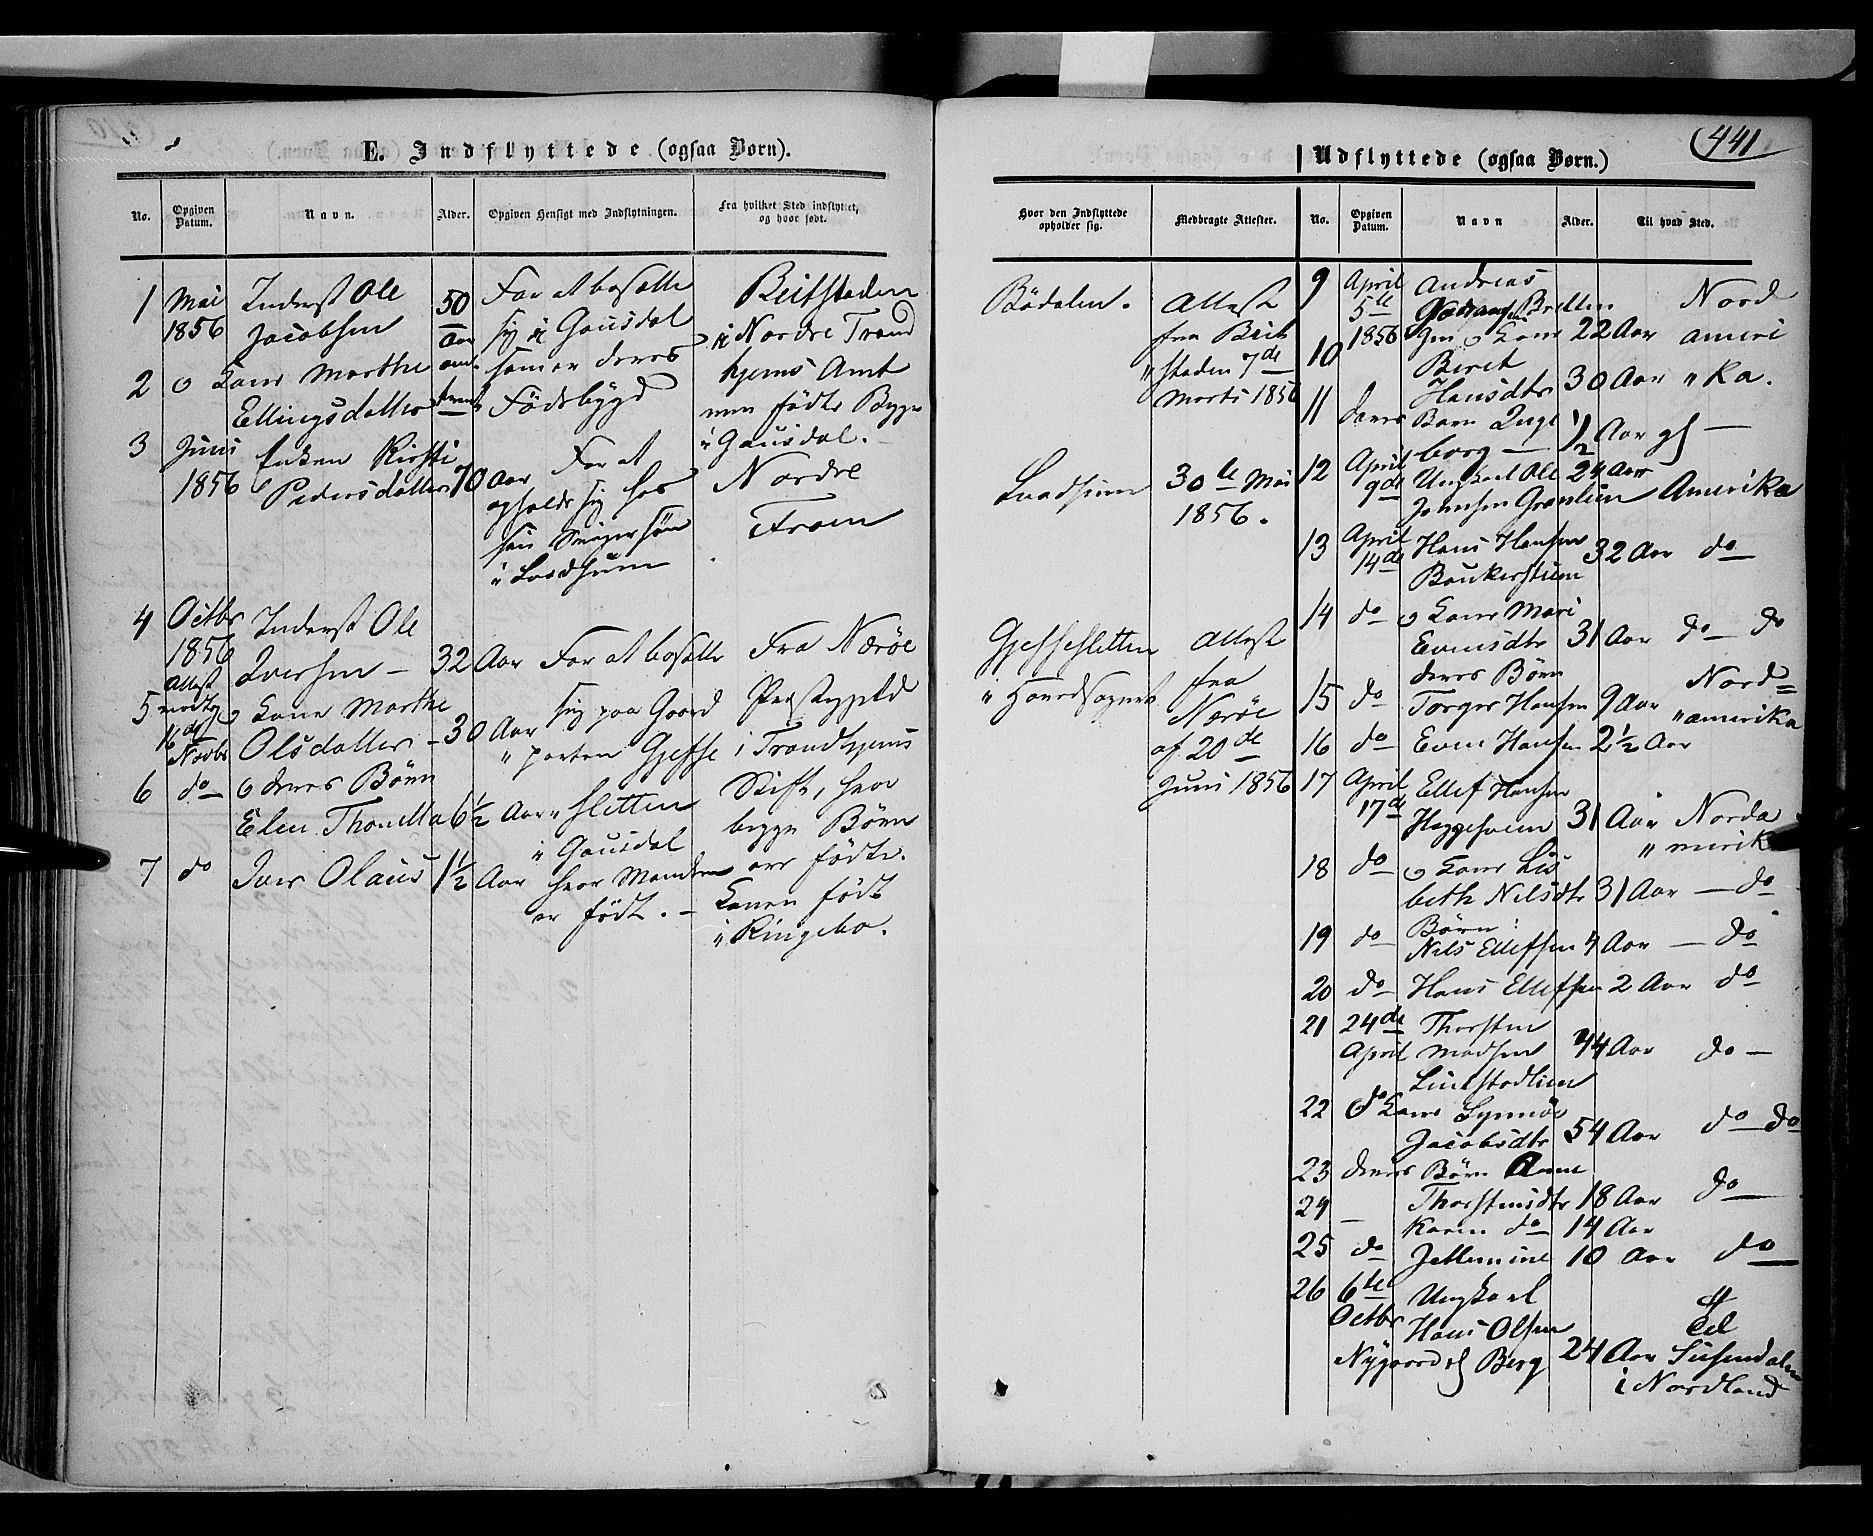 E. Indflyttede (ogsaa Børn).
No.
Opgiven Datum.
Navn.
Alder.
Opgiven Hensigt med Indflytningen.
Fra hvilket Sted indflyttet, og hvor født.
1 Mai 1856
Inderst Ole
Jacobsen
50
Aar
For at bosætte
sig i Gausdal
som er deres
Fødebygd
Beitstaden
i Nordre Trond
hjems Amt
men fødte Begge
i Gausdal.
2 o Kone Marthe
Ellingsdatter
3 Juni
1856
Enken Kirsti
Pedersdatter 70 Aar
For at
opholde sig hos
sin Svigersøn
Nordre
Froen
4 Octbr
1856
Attest
modtg
16de
Novbr
Inderst Ole
Iversen – 32 Aar
For at bosætte
sig paa Gaard
parten Gjefse
sletten
i Gausdal
hvor Manden
er født. –
Fra Nærøe
Præstegjeld
i Trondhjems
Stift, hvor
begge Børn
ere fødte.
Konen født
i Ringebo.
5 o Kone Marthe
Olsdatter – 30 Aar
6 do o deres Børn
Elen Thonetta 6½ Aar
7 do Iver Olaus 1½ Aar
441
Udflyttede (ogsaa Børn.)
Hvor den Indflyttede opholder sig.
Medbragte Attester.
No.
Opgiven Datum.
Navn
Alder.
Til hvad Sted.
Bødalen.
Attest
fra Beit
staden 7de
Marts 1856
30te Mai
1856.
Gjefsesletten
Attest
fra
Nærøe
af 20de
Juni 1856
9 April
5te
1856
Andreas
22 Aar
Nord
ameri
ka.
10 Beret
Hansdtr 30 Aar
11 deres Barn Inge
borg – ½ Aar gl –
12 April
9de
Ungkarl Ole 24 Aar
Johnsen Gronlien Amerika
13 April
14de
Hans Hansen
32 Aar do
14 do o Kone Mari
Evensdtr 31 Aar do do
deres Børn
15 do Torger Hansen 9 Aar
Nord=
amerika
16 do Even Hansen 2½ Aar
17 April
17de
Ellef Hansen
Heggesveen 31 Aar Norda
merik
18 do o Kone Lis
beth Nilsdtr 31 Aar – do
Børn:
19 do Nils Ellefsen 4 Aar – do
20 do Hans Ellefsen 2 Aar do
21 24de
April
Thorsten
Madsen 44 Aar do –
Linstadlien
22 do Kone Synnøv
Jacobsdtr 54 Aar do do
23 deres Børn Anne
Thorstensdtr 18 Aar do
24 – Karen do 14 Aar
25 do Jettemine 10 Aar do
26 6te
Octbr
Ungkarl
Hans Olsen
Nygaard Berg 24 Aar
til
Susendalen
i Nordland